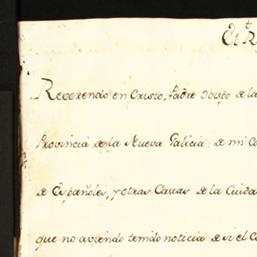 El R
Reverendo en Cristo, Padre Obispo de la
Provincia de la Nueva Galicia, de mi C
de Españoles, y otras Castas de la Ciuda
que no aviendo tenido noticia de si el C